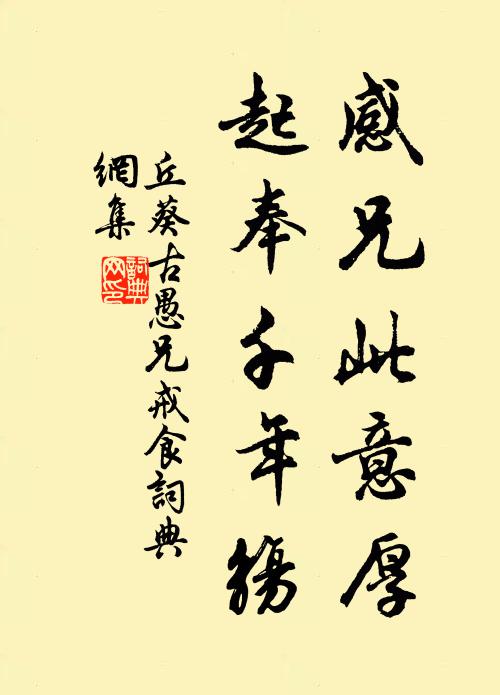 感兄此意厚
起奉千年觴
丘葵古愚兄戒食詞典
網集
詞典網印